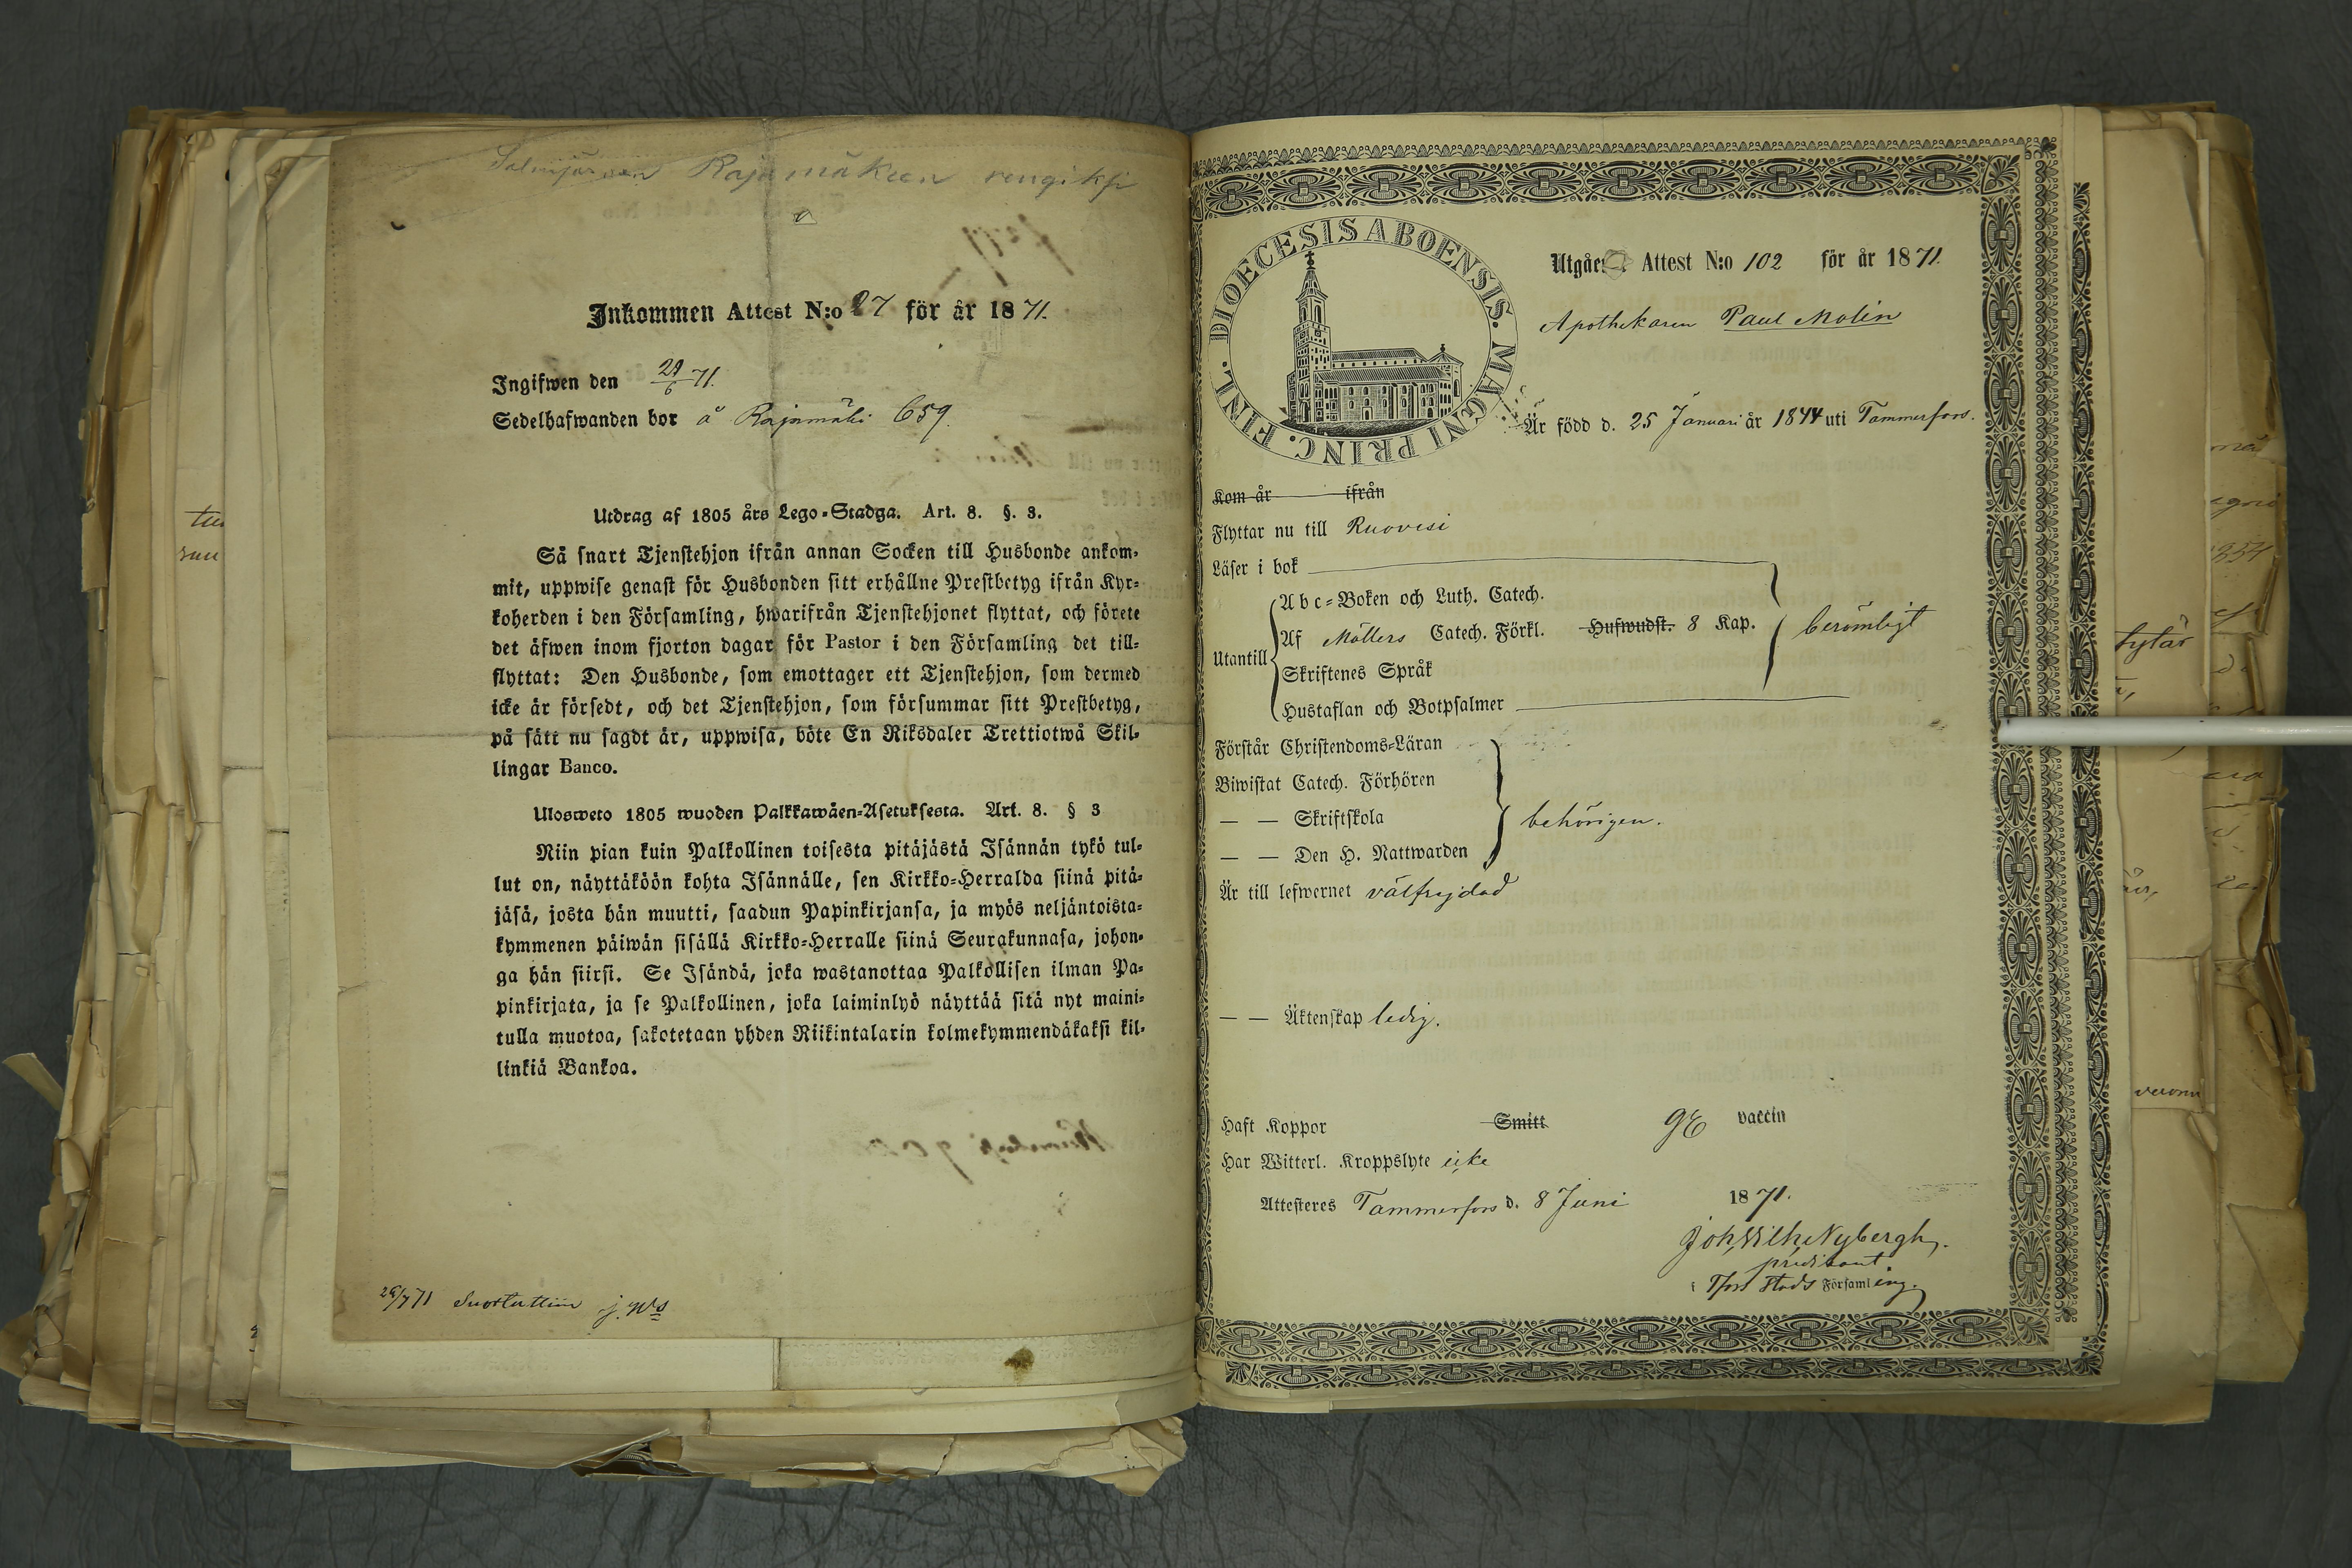 Rajamäkeen rengiksi
Inkommen Attest N:o 27 för år 1871.
Ingifwen den 29/6 71.
Sedelhafwanden bor å Rajamäki 659.
Utdrag af 1805 års Lego-Stadga. Art. 8. §. 3.
Så snart Tjenstehjon ifrån annan Socken till Husbonde ankom-
mit, uppwise genast för Husbonden sitt erhållne Prestbetyg ifrån Kyr-
koherden i den Församling, hwarifrån Tjenstehjonet flyttat, och förete
det äfwen inom fjorton dagar för Pastor i den Församling det till-
flyttat: Den Husbonde, som emottager ett Tjenstehjon, som dermed
icke är försedt, och det Tjenstehjon, som försummar sitt Prestbetyg,
på sätt nu sagdt är, uppwisa, böte En Riksdaler Trettiotwå Skil-
lingar Banco.
Ulosweto 1805 wuoden Palkkawäen-Asetuksesta. Art. 8. § 3
Niin pian kuin Palkollinen toisesta pitäjästä Isännän tykö tul-
lut on, näyttäköön kohta Isännälle, sen Kirkko-Herralda siinä pitä-
jäsä, josta hän muutti, saadun Papinkirjansa, ja myös neljäntoista-
kymmenen päiwän sisällä Kirkko-Herralle siinä Seurakunnasa, johon-
ga hän siirsi. Se Isändä, joka wastanottaa Palkollisen ilman Pa-
pinkirjata, ja se Palkollinen, joka laiminlyö näyttää sitä nyt maini-
tulla muotoa, sakotetaan yhden Riikintalarin kolmekymmendäkaksi kil-
linkiä Bankoa.
DIOECESIS ABOENSIS. MAGNI PRINC. FINL.
Attest N:o 102 för år 1871.
Apothekaren Paul Molin
Är född d. 25 Januari år 1844 uti Tammerfors.
Kom år ifrån
Flyttar nu till Ruovesi
Läser i bok
Utantill
Abc-Boken och Luth. Catech.
Af Möllers Catech. Förkl. Hufwudst. 8 Kap. berömligt
Skriftenes Språk
Hustaflan och Botpsalmer
Förstår Christendoms-Läran
Biwistat Catech. Förhören
— — Skriftskola behörigen.
— — Den H. Nattwarden
Är till lefwernet välfrejdad
— — Äktenskap ledig.
Haft Koppor Smitt vaccin
Har Witterl. Kroppslyte icke
Attesteres Tammerfors d. 8 Juni 1871.
Joh. Wilh. Nybergh.
predikant
i Tfors Stads Församling.